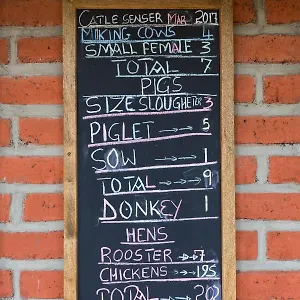 CATLE SENSER MAR 2017
MIKING COWS 4
SMALL FEMALE 3
TOTAL 7
PIGS
SIZE SLOUGHETER 3
PIGLET →→→ 5
SOW →→→ 1
TOTAL →→→ 9
DONKEY 1
HENS
ROOSTER →→ 7
CHICKENS →→→ 195
TOTAL →→→ 20